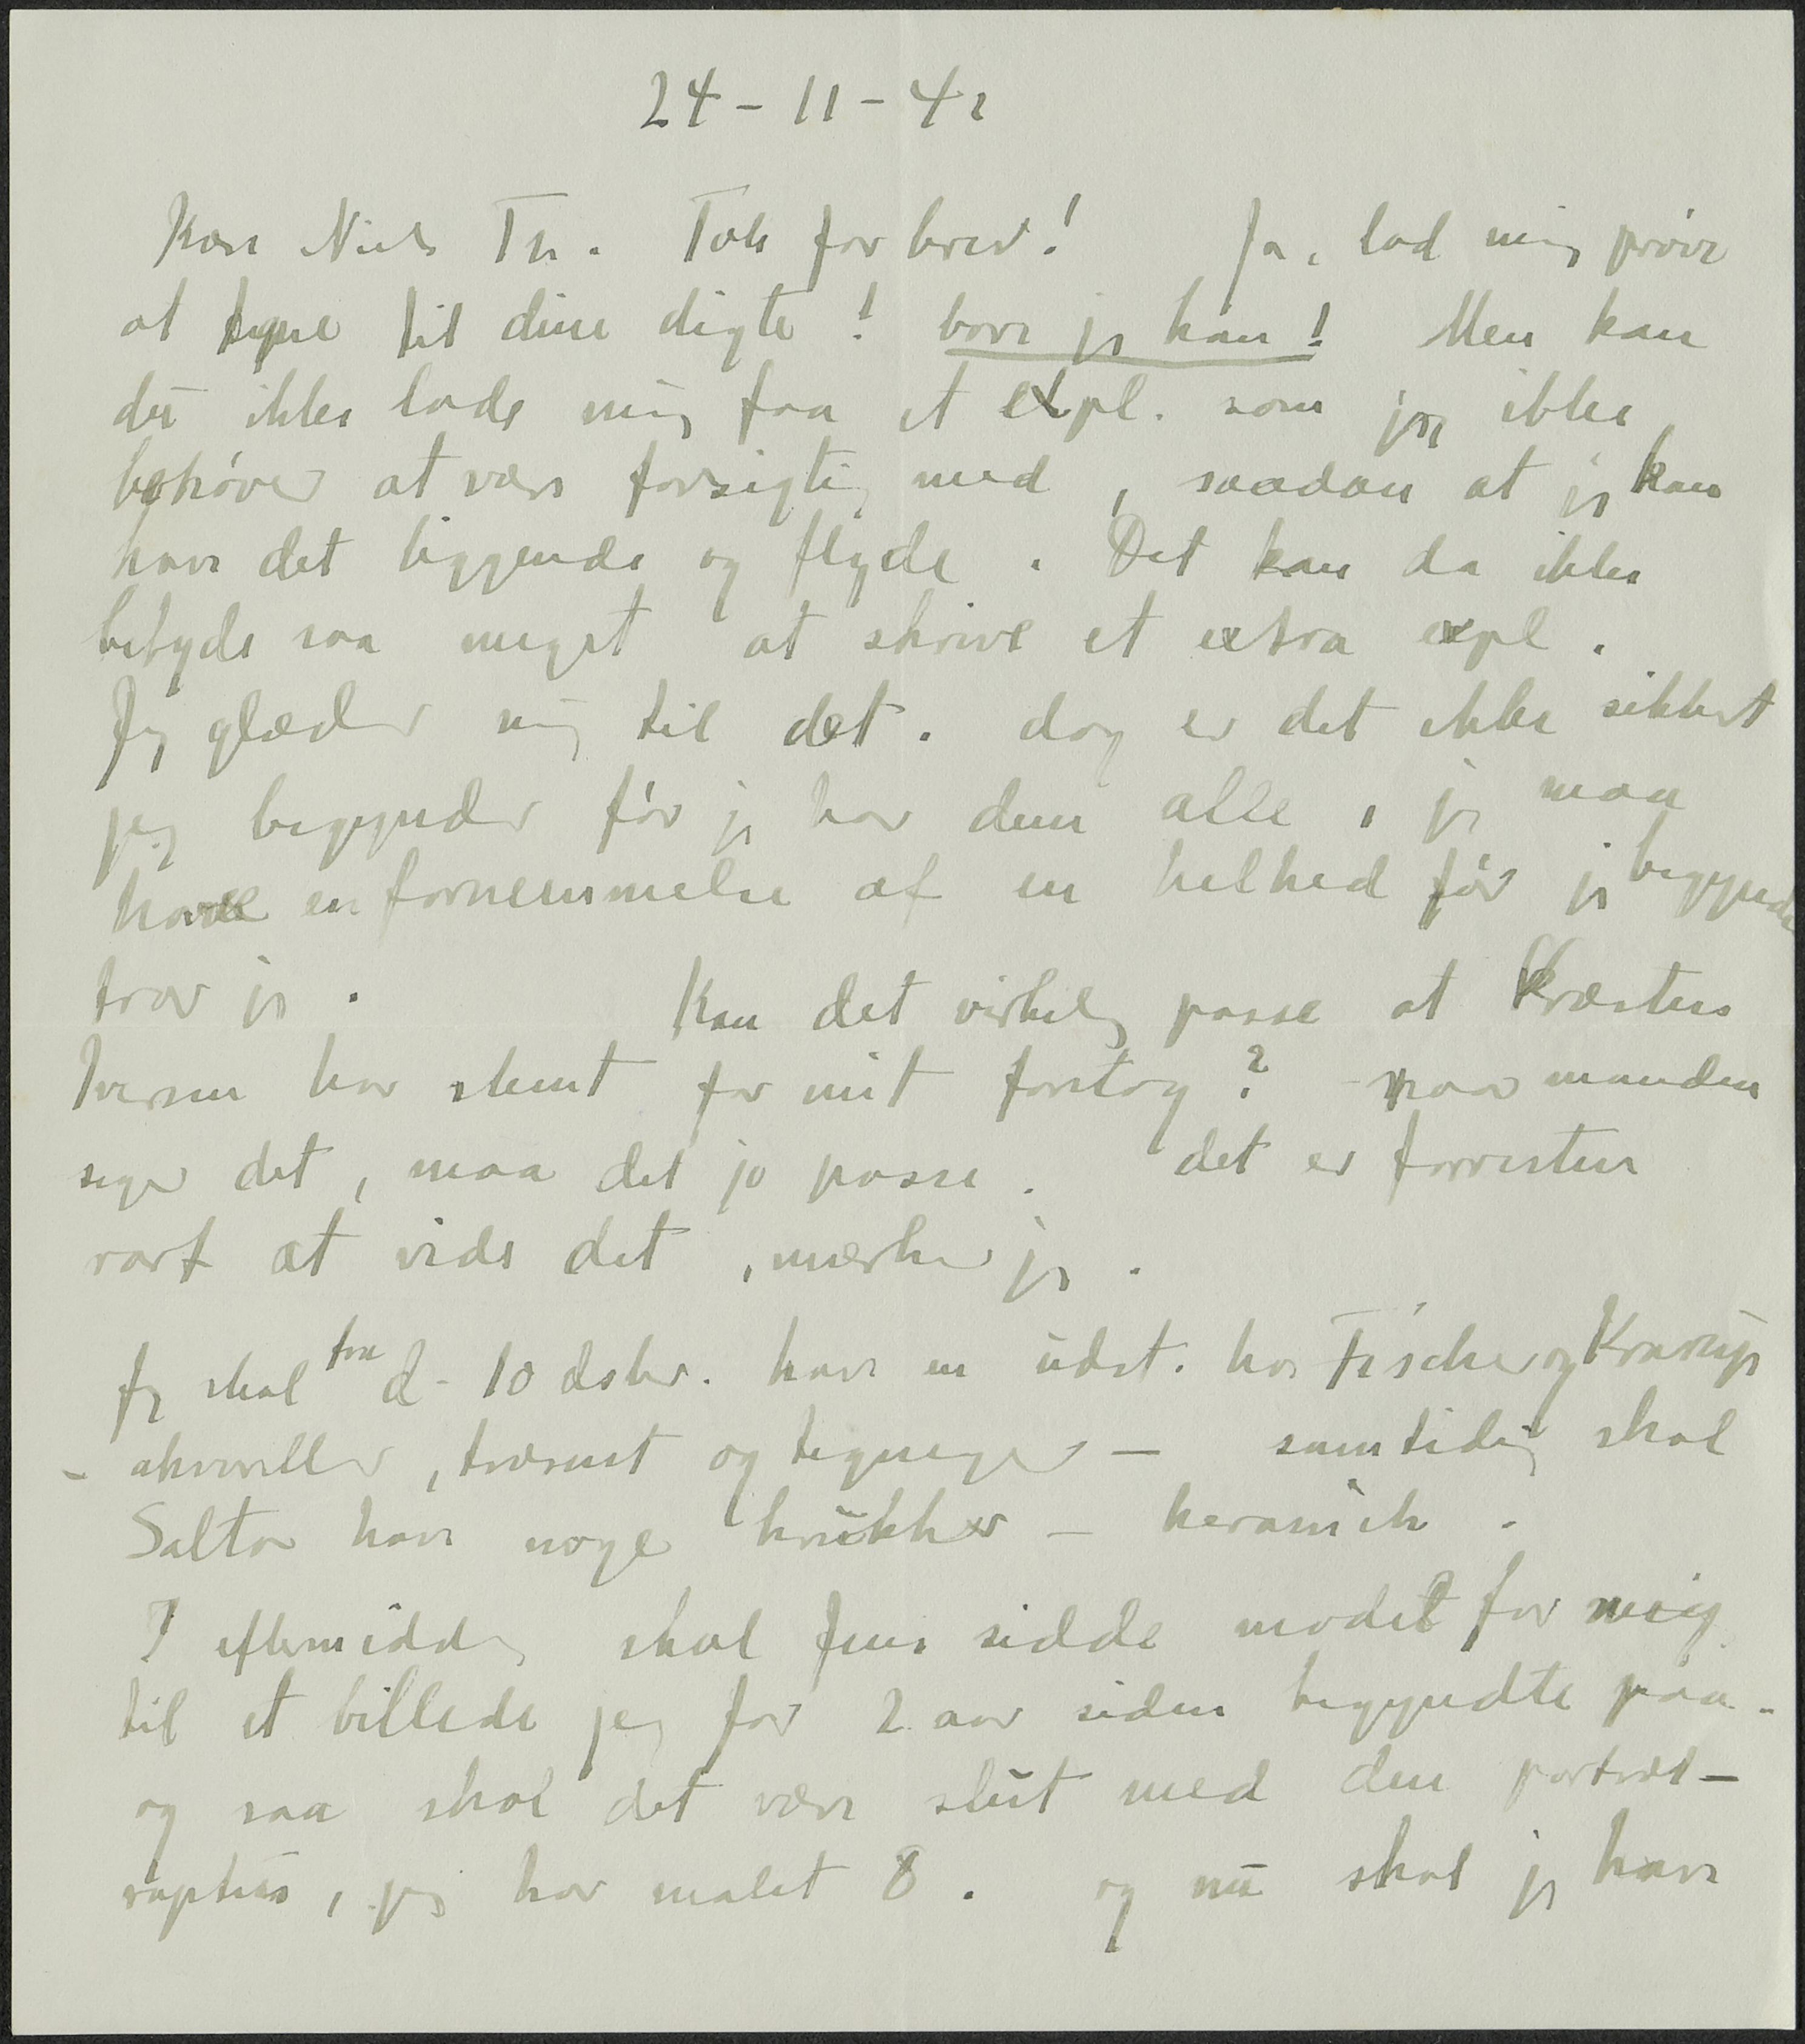 24-11-42
Kære Niels Th. Tak for brev! Ja, lad mig prøve
at tegne til dine digte! bare jeg kan! Men kan
du ikke lade mig faa et expl. som jeg ikke
behøver at være forsigtig med, saadan at jeg kan
have det liggende og flyde. Det kan da ikke
betyde saa meget at skrive et extra expl.
Jeg glæder mig til det. dog er det ikke sikkert
jeg begynder før jeg har dem alle, jeg maa
have en fornemmelse af en helhed før jeg begynder
tror jeg. Kan det virkelig passe at Kræsten
Iversen har stemt for mit forslag? - naar manden
siger det, maa det jo passe. det er forresten
rart at vide det, mærker jeg.
Jeg skal fra d. 10 dsbr. have en udst. hos Fischer og Krarup
- akvareller, træsnit og tegninger - samtidig skal
Salto have nogle krukker - keramik.
I eftermiddag skal Jens sidde model for mig
til et billede jeg for 2 aar siden begyndte paa.
og saa skal det være slut med den portræt-
raptus, jeg har malet 8. og nu skal jeg have